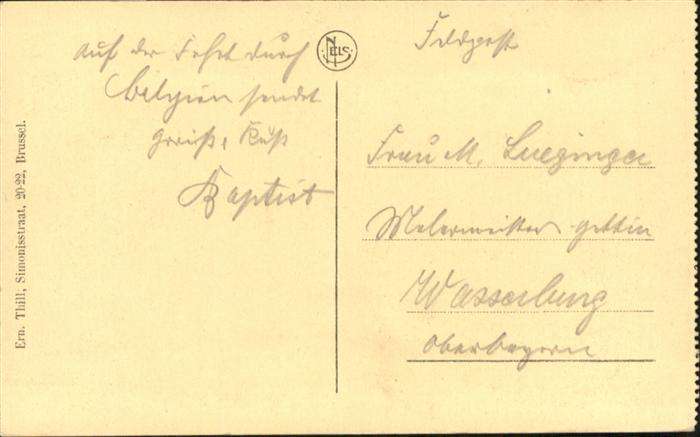 Auf der Fahrt durch
Belgien sendet
Gruß, Kuß
Baptist
NELS
Feldpost
Frau M.
Malermeisters gattin
Wasserburg
Oberbayern
Ern. Thill, Simonisstraat, 20-22, Brussel.